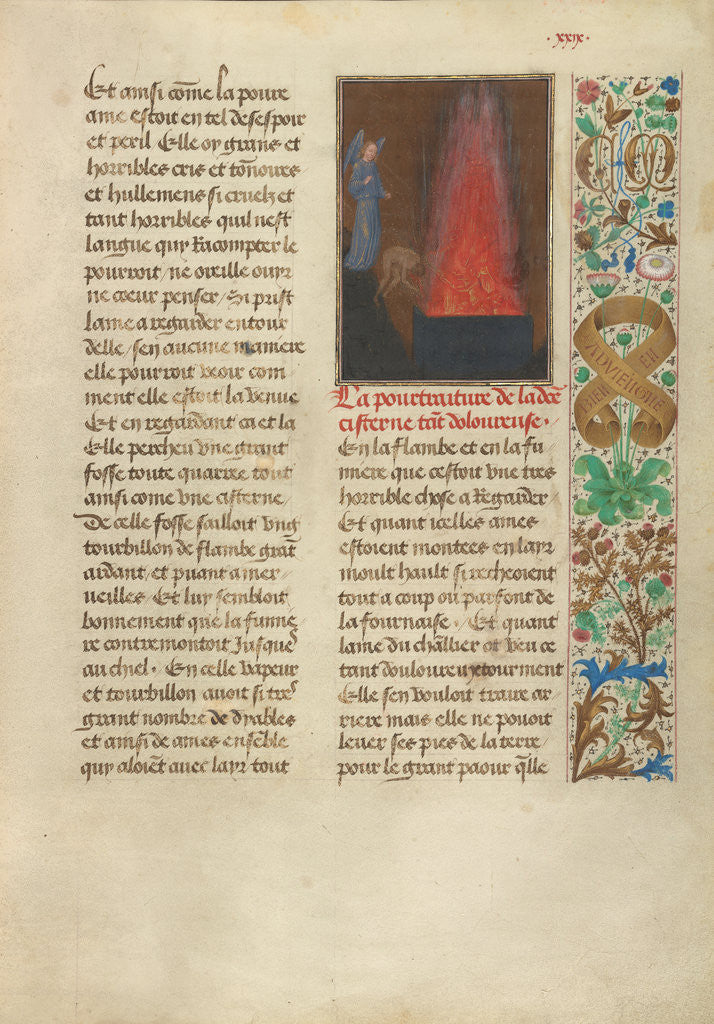 ·xxix·
Et ainsi cõme la poure
ame estoit en tel desespoir
et peril Elle oy grans et
horribles cris et tõnoires
et hullemens si cruelz et
tant horribles quil nest
langue quy Racompter le
pourroit / ne oreille ouyr
ne coeur penser / Si prist
lame a regarder entour
delle / sen aucune maniere
elle pourroit veoir com
ment elle estoit la venue
Et en regardant ca et la
Elle percheu vne grant
fosse toute quarree tout
ainsi come vne cisterne /
De celle fosse sailloit vng
tourbillon de flambe grãt
ardant / et puant a mer /
ueilles / Et luy sembloit
bonnement que la fume /
re contremontoit Jusques
au chiel · En celle vapeur
et tourbillon auoit si tres
grant nombre de dyables
et ainsi de ames ensẽble
quy aloiẽt auec layr tout
La pourtraiture de la dce
cisterne tãt doloureuse ·
En la flambe et en la fu /
miere que cestoit vne tres
horrible chose a Regarder ·
Et quant icelles ames
estoient montees en layr
moult hault si recheoient
tout a coup ou parfont de
la fournaise · Et quant
lame du chãllier ot veu ce
tant douloureux tourment
Elle sen vouloit traire ar /
riere mais elle ne pouoit
leuer ses pies de la terre /
pour le grant paour q̃lle
CM
BIEN
EN
ADVIENGNE